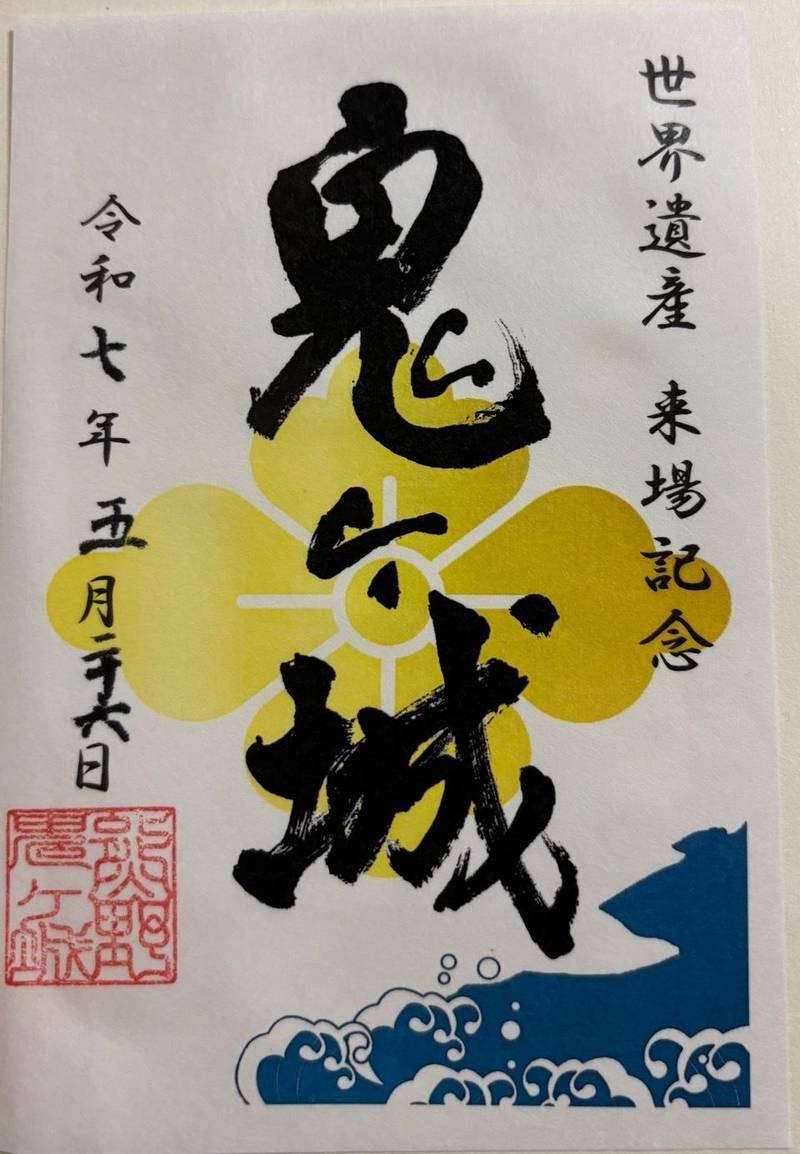 世界遺産　来場記念
鬼ヶ城
令和七年五月二十六日
熊野
鬼ヶ城